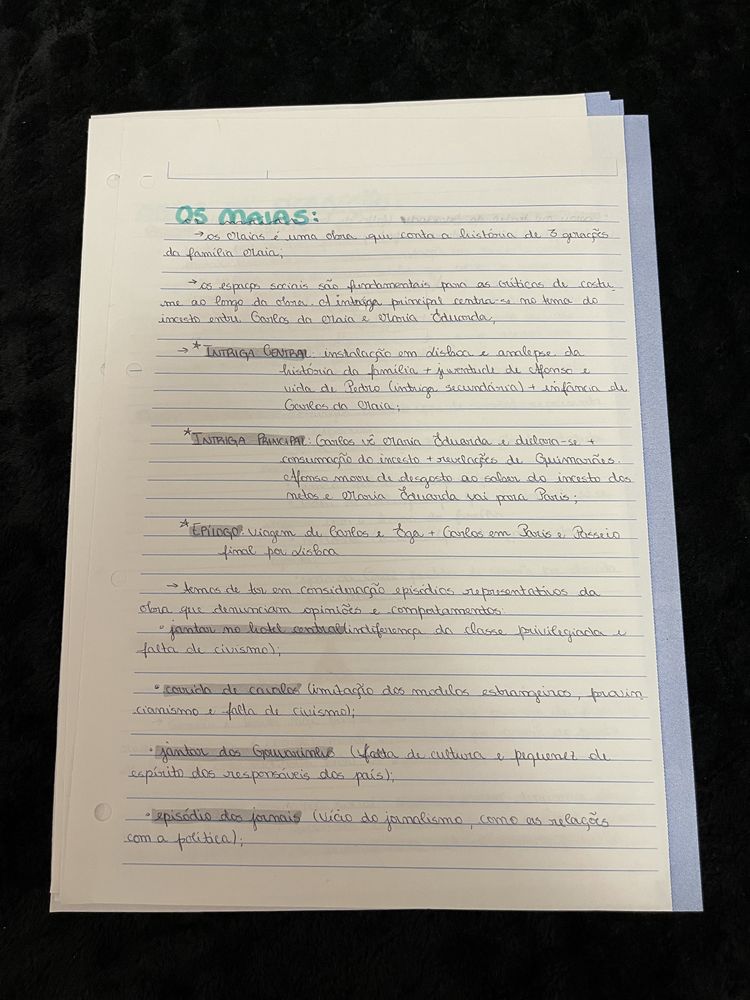 OS MAIAS:
→ os Maias é uma obra que conta a história de 3 gerações
da família Maia;
→ os espaços sociais são fundamentais para as críticas de costu,
me ao longo da obra. A intriga principal centra-se no tema do
incesto entre Carlos da Maia e Maria Eduarda,
→ * INTRIGA CENTRAL: instalação em Lisboa e analepse da
história da família + juventude de Afonso e
vida de Pedro (intriga secundária) + infância de
Carlos da Maia;
* INTRIGA PRINCIPAL: Carlos vê Maria Eduarda e declara-se +
consumação do incesto + revelações de Guimarães.
Afonso morre de desgosto ao saber do incesto dos
netos e Maria Eduarda vai para Paris;
* EPÍLOGO: viagem de Carlos e Ega + Carlos em Paris e Passeio
final por Lisboa
→ temos de ter em consideração episódios representativos da
obra que denunciam opiniões e comportamentos:
• jantar no hotel central (indiferença da classe privilegiada e
falta de civismo);
• corrida de cavalos (imitação dos modelos estrangeiros, provin
cianismo e falta de civismo);
• jantar dos Gouvarinho (falta de cultura e pequenez de
espírito dos responsáveis dos país);
• episódio dos jornais (vício do jornalismo, como as relações
com a política);